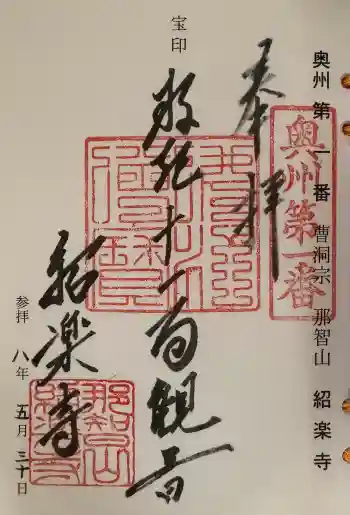 奥州 第一番 曹洞宗 那智山 紹楽寺
奥州第一番
奉拝
十一面観音
宝印
紹楽寺
参拝 八年 五月 三十日
那智山
紹楽寺